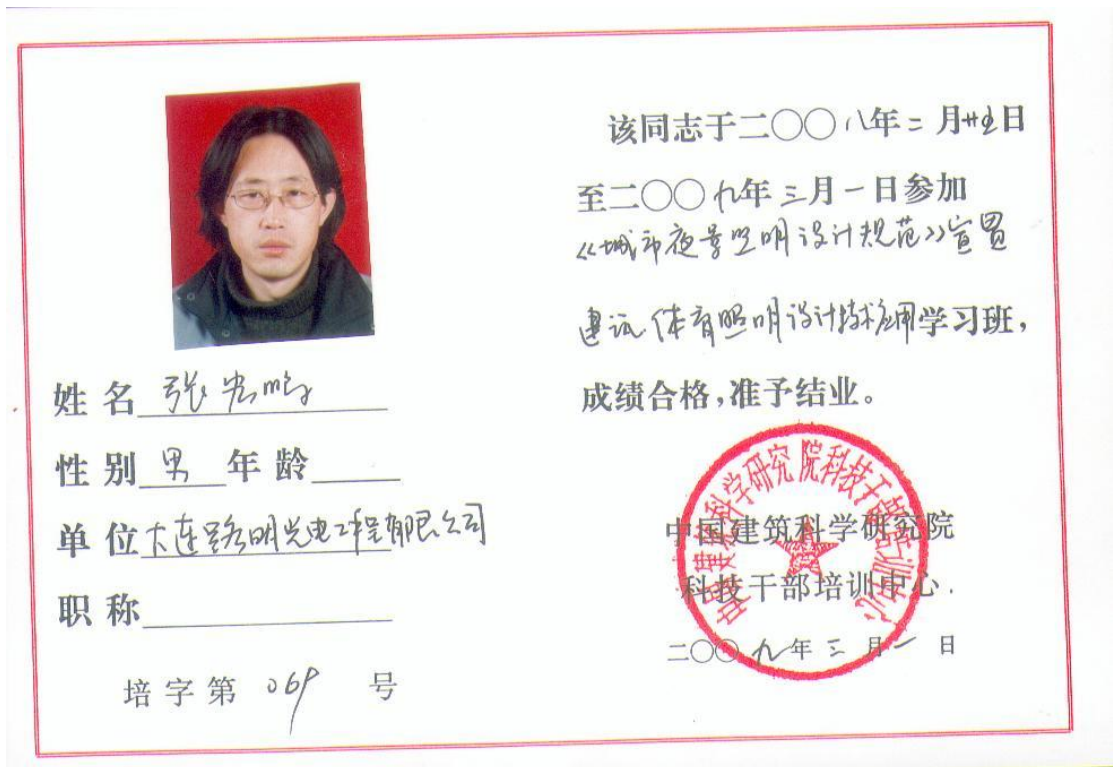 姓 名 张宏鹏
性 别 男 年 龄
单 位 大连路明光电工程有限公司
职 称
培 字 第 069 号
该同志于二〇〇八年二月廿五日
至二〇〇九年三月一日参加
《城市夜景照明设计规范》宣贯
暨 体育照明设计技术应用学习班,
成绩合格,准予结业。
中国建筑科学研究院科技干部培训中心
中国建筑科学研究院
科技干部培训中心.
二〇〇九年三月一日